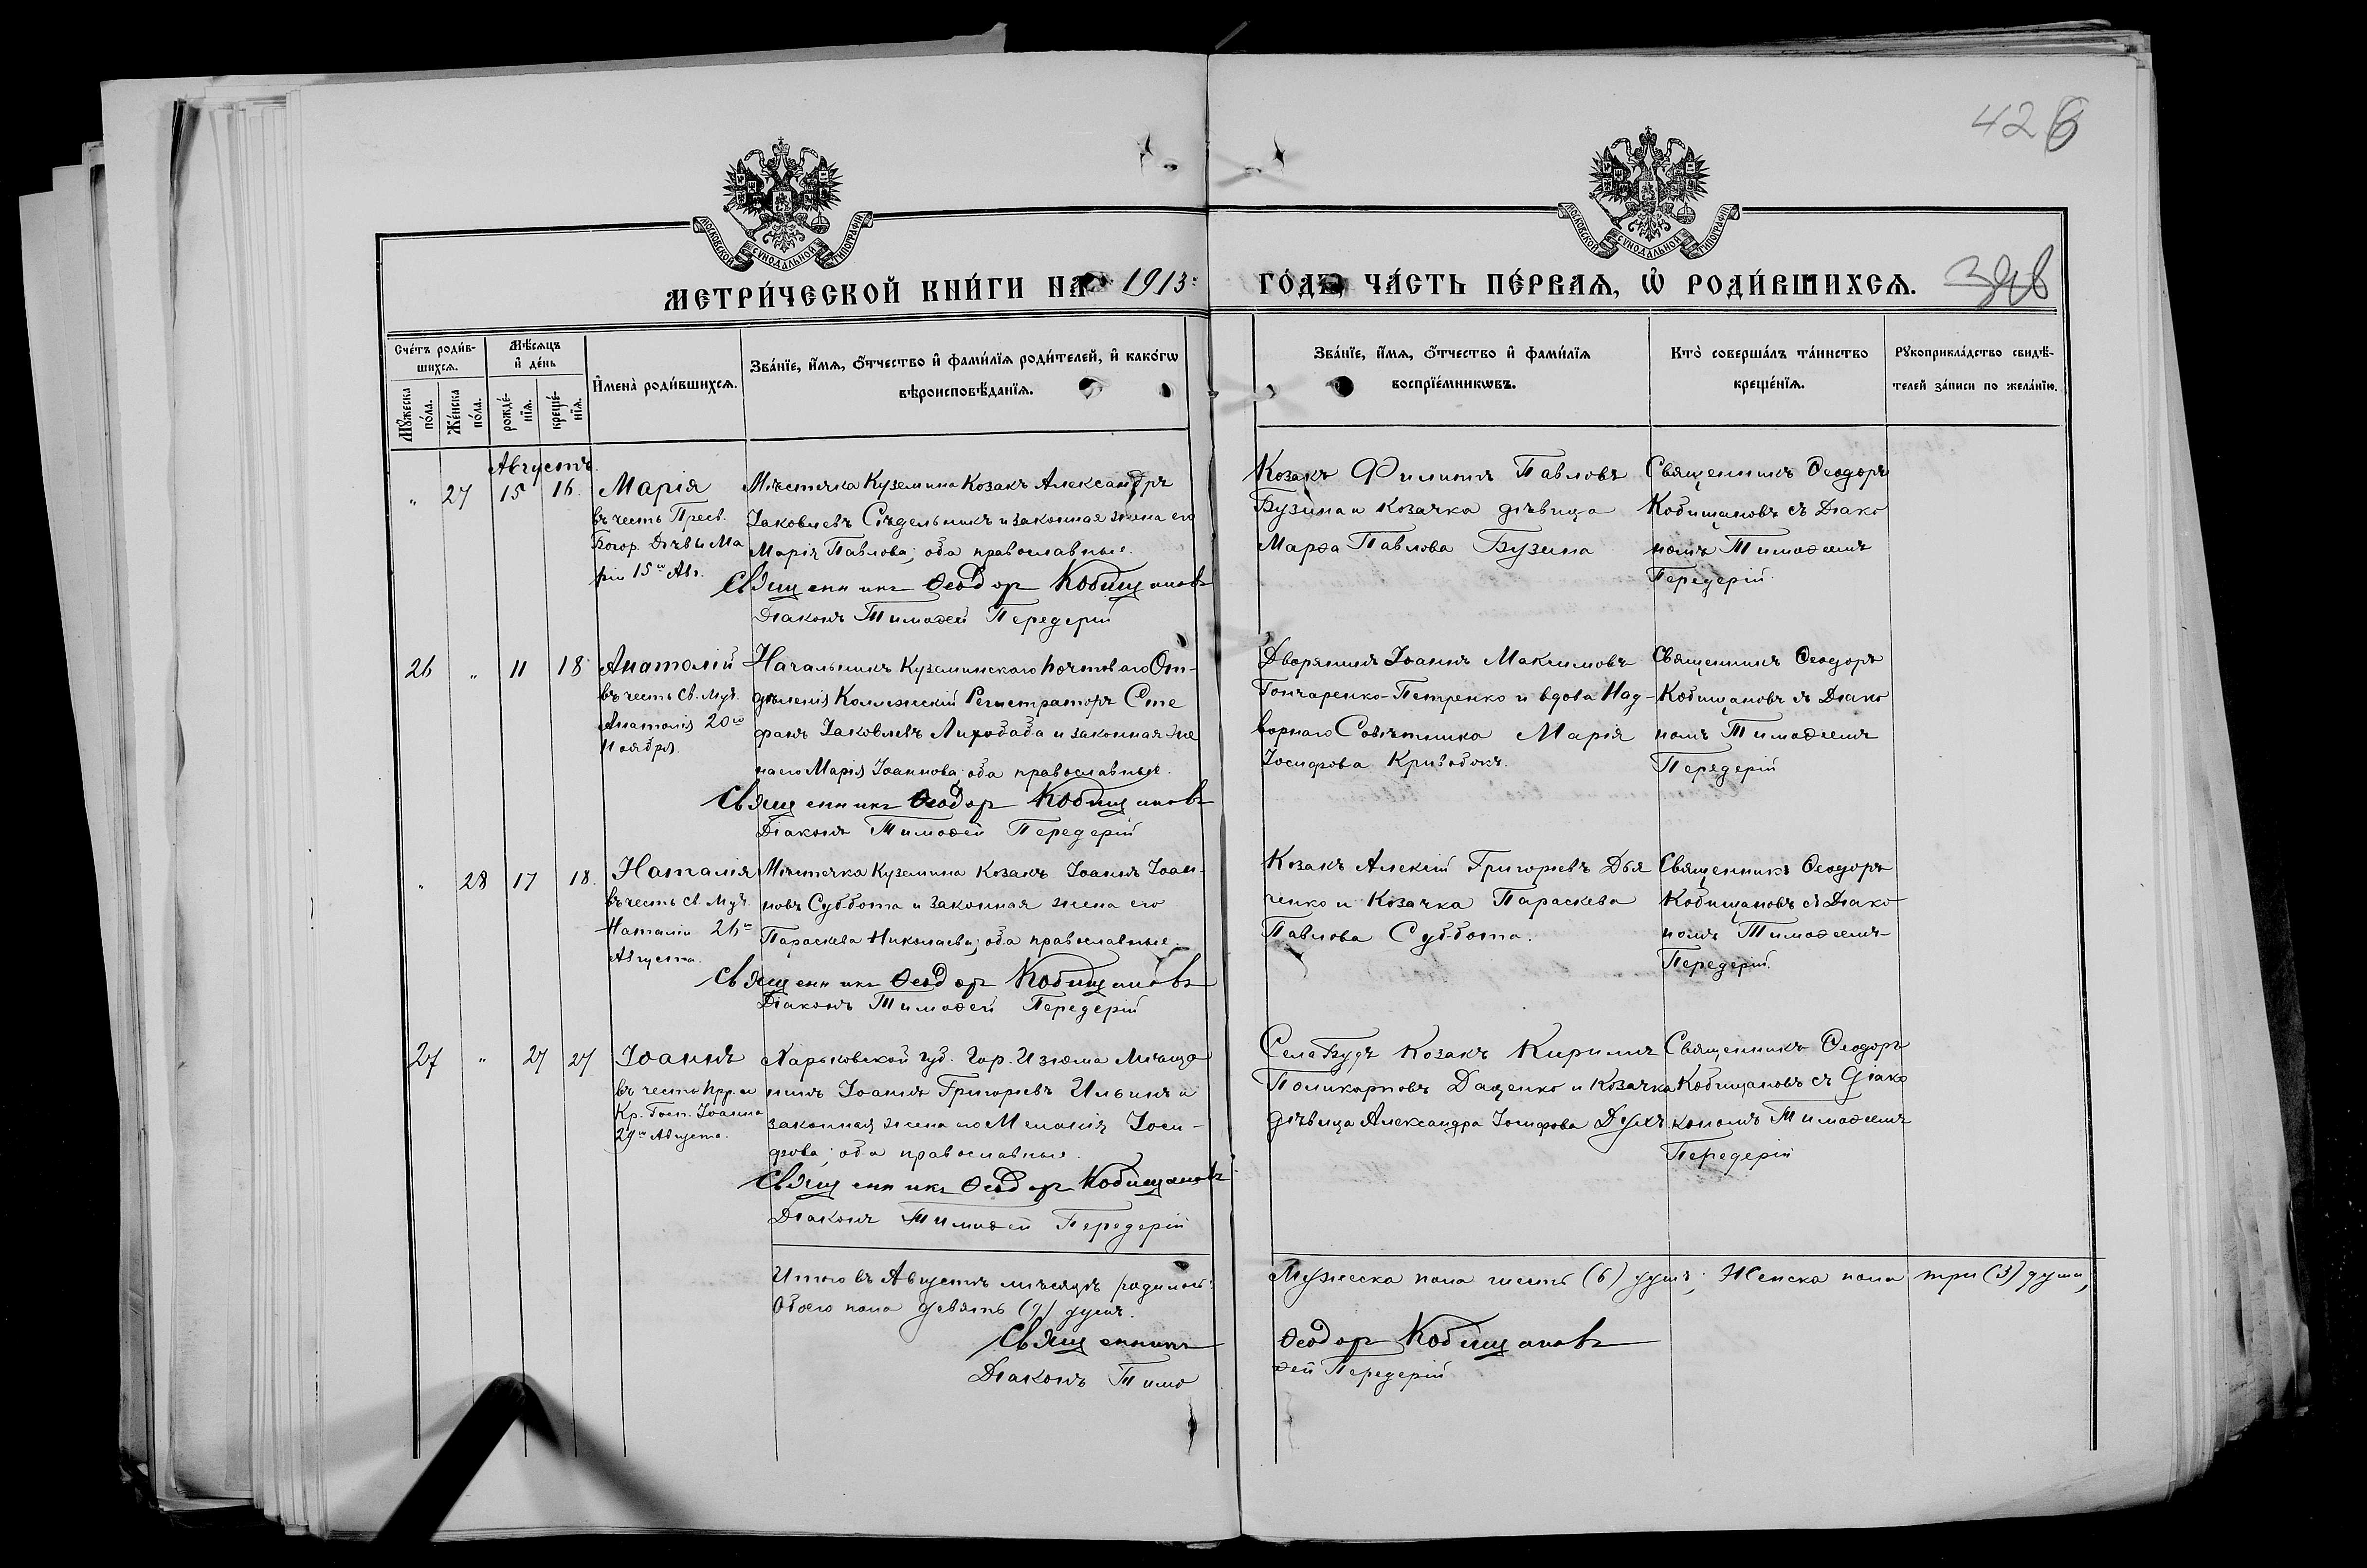 428
МОСКОВСКОЙ СѴНОДАЛЬНОЙ ТИПОГРАФІИ
МОСКОВСКОЙ СѴНОДАЛЬНОЙ ТИПОГРАФІИ
МЕТРИ́ЧЕСКОЙ КНИ́ГИ НА 1913 ГО́ДЪ, ЧА́СТЬ ПЕ́РВАѦ, Ѡ҆ РОДИ́ВШИХСѦ.
Сче́тъ роди́в-
шихсѧ.
Мѣ́сѧцъ
и҆ де́нь
Мꙋ́жеска
по́ла.
Же́нска
по́ла.
рожде́-
нїѧ.
креще́-
нїѧ.
И҆мена̀ роди́вшихсѧ.
Зва́нїе, и҆́мѧ, ѻ҆́тчество и҆ фами́лїѧ роди́телей, и҆ како́гѡ
вѣроисповѣ́данїѧ.
Зва́нїе, и҆́мѧ, ѻ҆́тчество и҆ фами́лїѧ
воспрїе́мникѡвъ.
Кто̀ соверша́лъ та́инство
креще́нїѧ.
Рꙋкоприкла́дство свидѣ́-
телей за́писи по жела́нїю.
Августъ.
" 27 15 16.
Марія
въ честь Пресв.
Богор. Дѣвы Ма
ріи 15го Авг.
Мѣстечка Куземина Козакъ Александръ
Іаковлевъ Сѣдельникъ и законная жена его
Марія Павлова; оба православные.
Священникъ Ѳеодоръ Кобищановъ
Діаконъ Тимоѳей Передерій
Козакъ Филиппъ Павловъ
Бузина и Козачка дѣвица
Марѳа Павлова Бузина
Священникъ Ѳеодоръ
Кобищановъ съ Діако
номъ Тимоѳеемъ
Передерій.
26 " 11 18
Анатолій
въ честь Св. Муч.
Анатолія 20го
Ноября.
Начальникъ Куземинскаго Почтоваго От-
дѣленія Коллежскій Регистраторъ Сте
фанъ Іаковлевъ Лиходада и законная же
на его Марія Іоаннова; оба православные.
Священникъ Ѳеодоръ Кобищановъ
Діаконъ Тимоѳей Передерій
Дворянинъ Іоаннъ Максимовъ
Гончаренко-Петренко и вдова Над-
ворнаго Совѣтника Марія
Іосифова Кривобокъ.
Священникъ Ѳеодоръ
Кобищановъ съ Діако
номъ Тимоѳеемъ
Передерій
" 28 17 18.
Наталія
въ честь Св. Муч.
Наталіи 26го
Августа.
Мѣстечка Куземина Козакъ Іоаннъ Іоан-
новъ Суббота и законная жена его
Параскева Николаева; оба православные.
Священникъ Ѳеодоръ Кобищановъ
Діаконъ Тимоѳей Передерій
Козакъ Алексій Григоріевъ Дья
ченко и Козачка Параскева
Павлова Суббота.
Священникъ Ѳеодоръ
Кобищановъ съ Діако
номъ Тимоѳеемъ
Передерій.
27 " 27 27
Іоаннъ
въ честь Прр. и
Кр. Госп. Іоанна
29го Августа.
Харьковской губ. Гор. Изюма Мѣща
нинъ Іоаннъ Григоріевъ Ильинъ и
законная жена его Меланія Іоси-
фова; оба православные.
Священникъ Ѳеодоръ Кобищановъ
Діаконъ Тимоѳей Передерій
Села Будъ Козакъ Кириллъ
Поликарповъ Даценко и Козачка
дѣвица Александра Іосифова Духъ.
Священникъ Ѳеодоръ
Кобищановъ съ Діако
кономъ Тимоѳеемъ
Передерій
Итого въ Августѣ мѣсяцѣ родилось:
Обоего пола девять (9) душъ.
Мужеска пола шесть (6) душъ; Женска пола три (3) души,
Священникъ Ѳеодоръ Кобищановъ
Діаконъ Тимоѳей Передерій